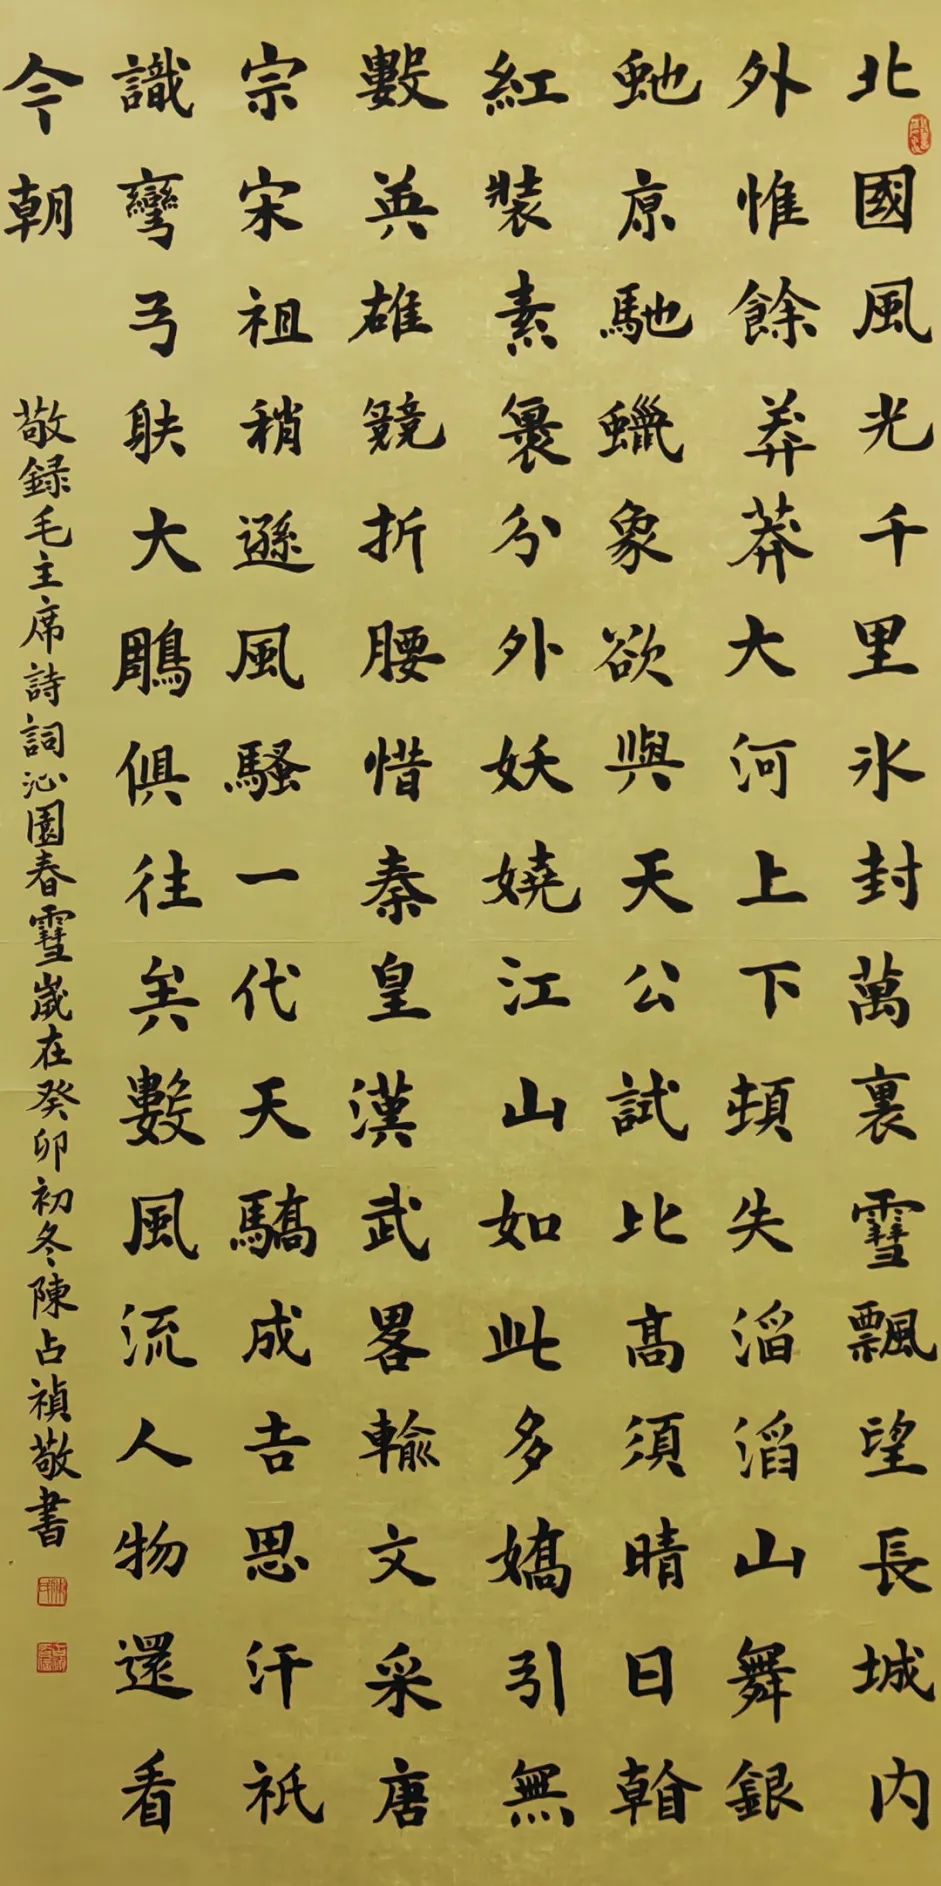 北國風光千里氷封萬裏雪飄望長城内
外惟餘莽莽大河上下頓失滔滔山舞銀
虵原馳蠟象欲與天公試比高須晴日翰
紅裝素裹分外妖嬈江山如此多嬌引無
數英雄競折腰惜秦皇漢武畧輸文采唐
宗宋祖稍遜風騷一代天驕成吉思汗衹
識彎弓肰大鵰俱往矣數風流人物還看
今朝
敬録毛主席詩詞沁園春雪嵗在癸卯初冬陳占禎敬書